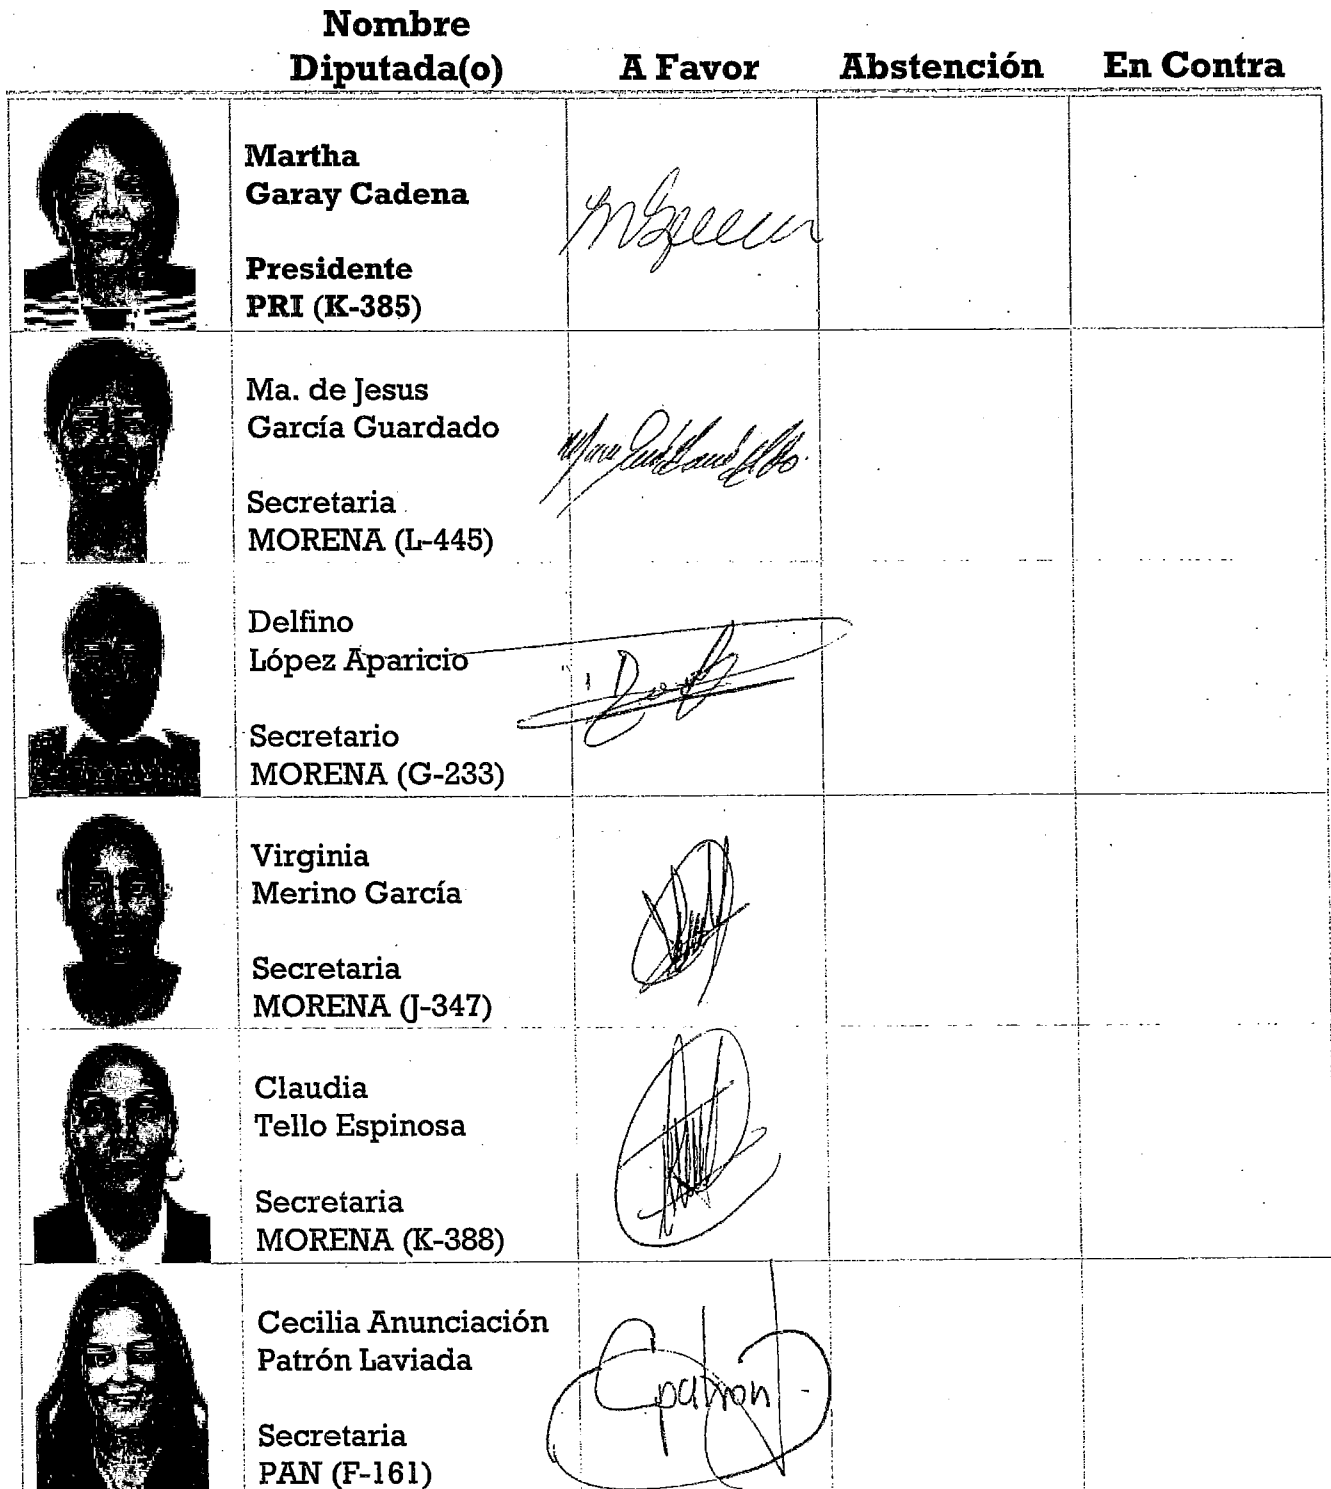 Nombre
Diputada(o) A Favor Abstención En Contra
Martha
Garay Cadena
Presidente
PRI (K-385)
Ma. de Jesus
García Guardado
Secretaria
MORENA (L-445)
Delfino
López Aparicio
Secretario
MORENA (G-233)
Virginia
Merino García
Secretaria
MORENA (J-347)
Claudia
Tello Espinosa
Secretaria
MORENA (K-388)
Cecilia Anunciación
Patrón Laviada
Cpatron
Secretaria
PAN (F-161)